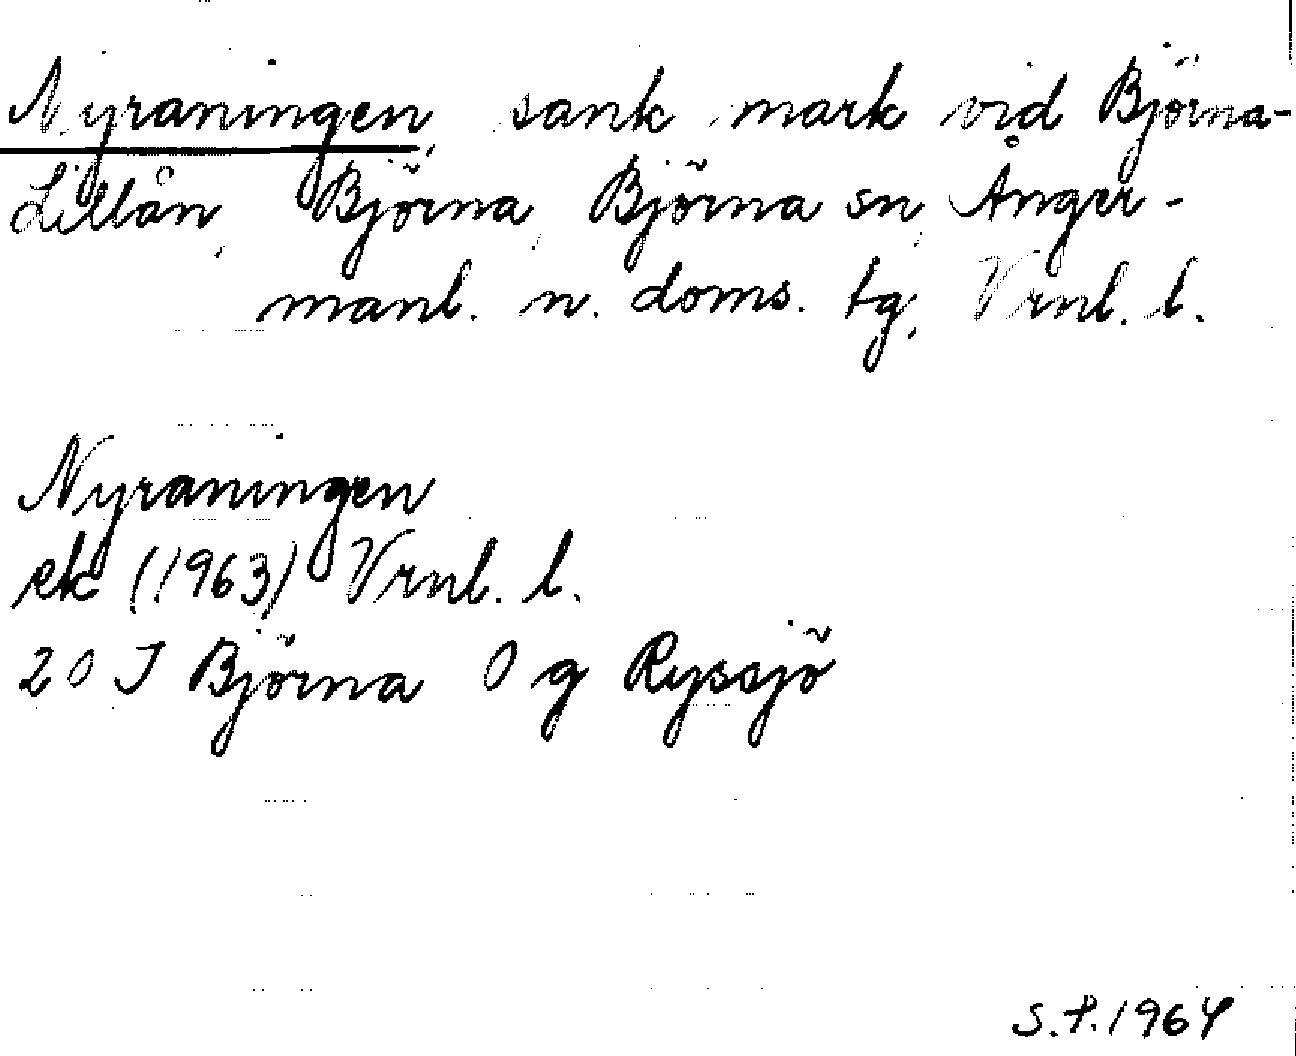 Nyraningen, sank mark vid Björna-
Lillån, Björna, Björna sn, Ånger-
manl. n. doms. tg, Vrnl. l.
Nyraningen
ek (1963) Vrnl. l.
20 J Björna 0 g Ryssjö
S.P. 1964